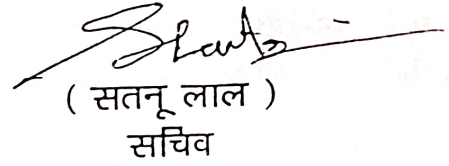 ( सतनू लाल )
सचिव